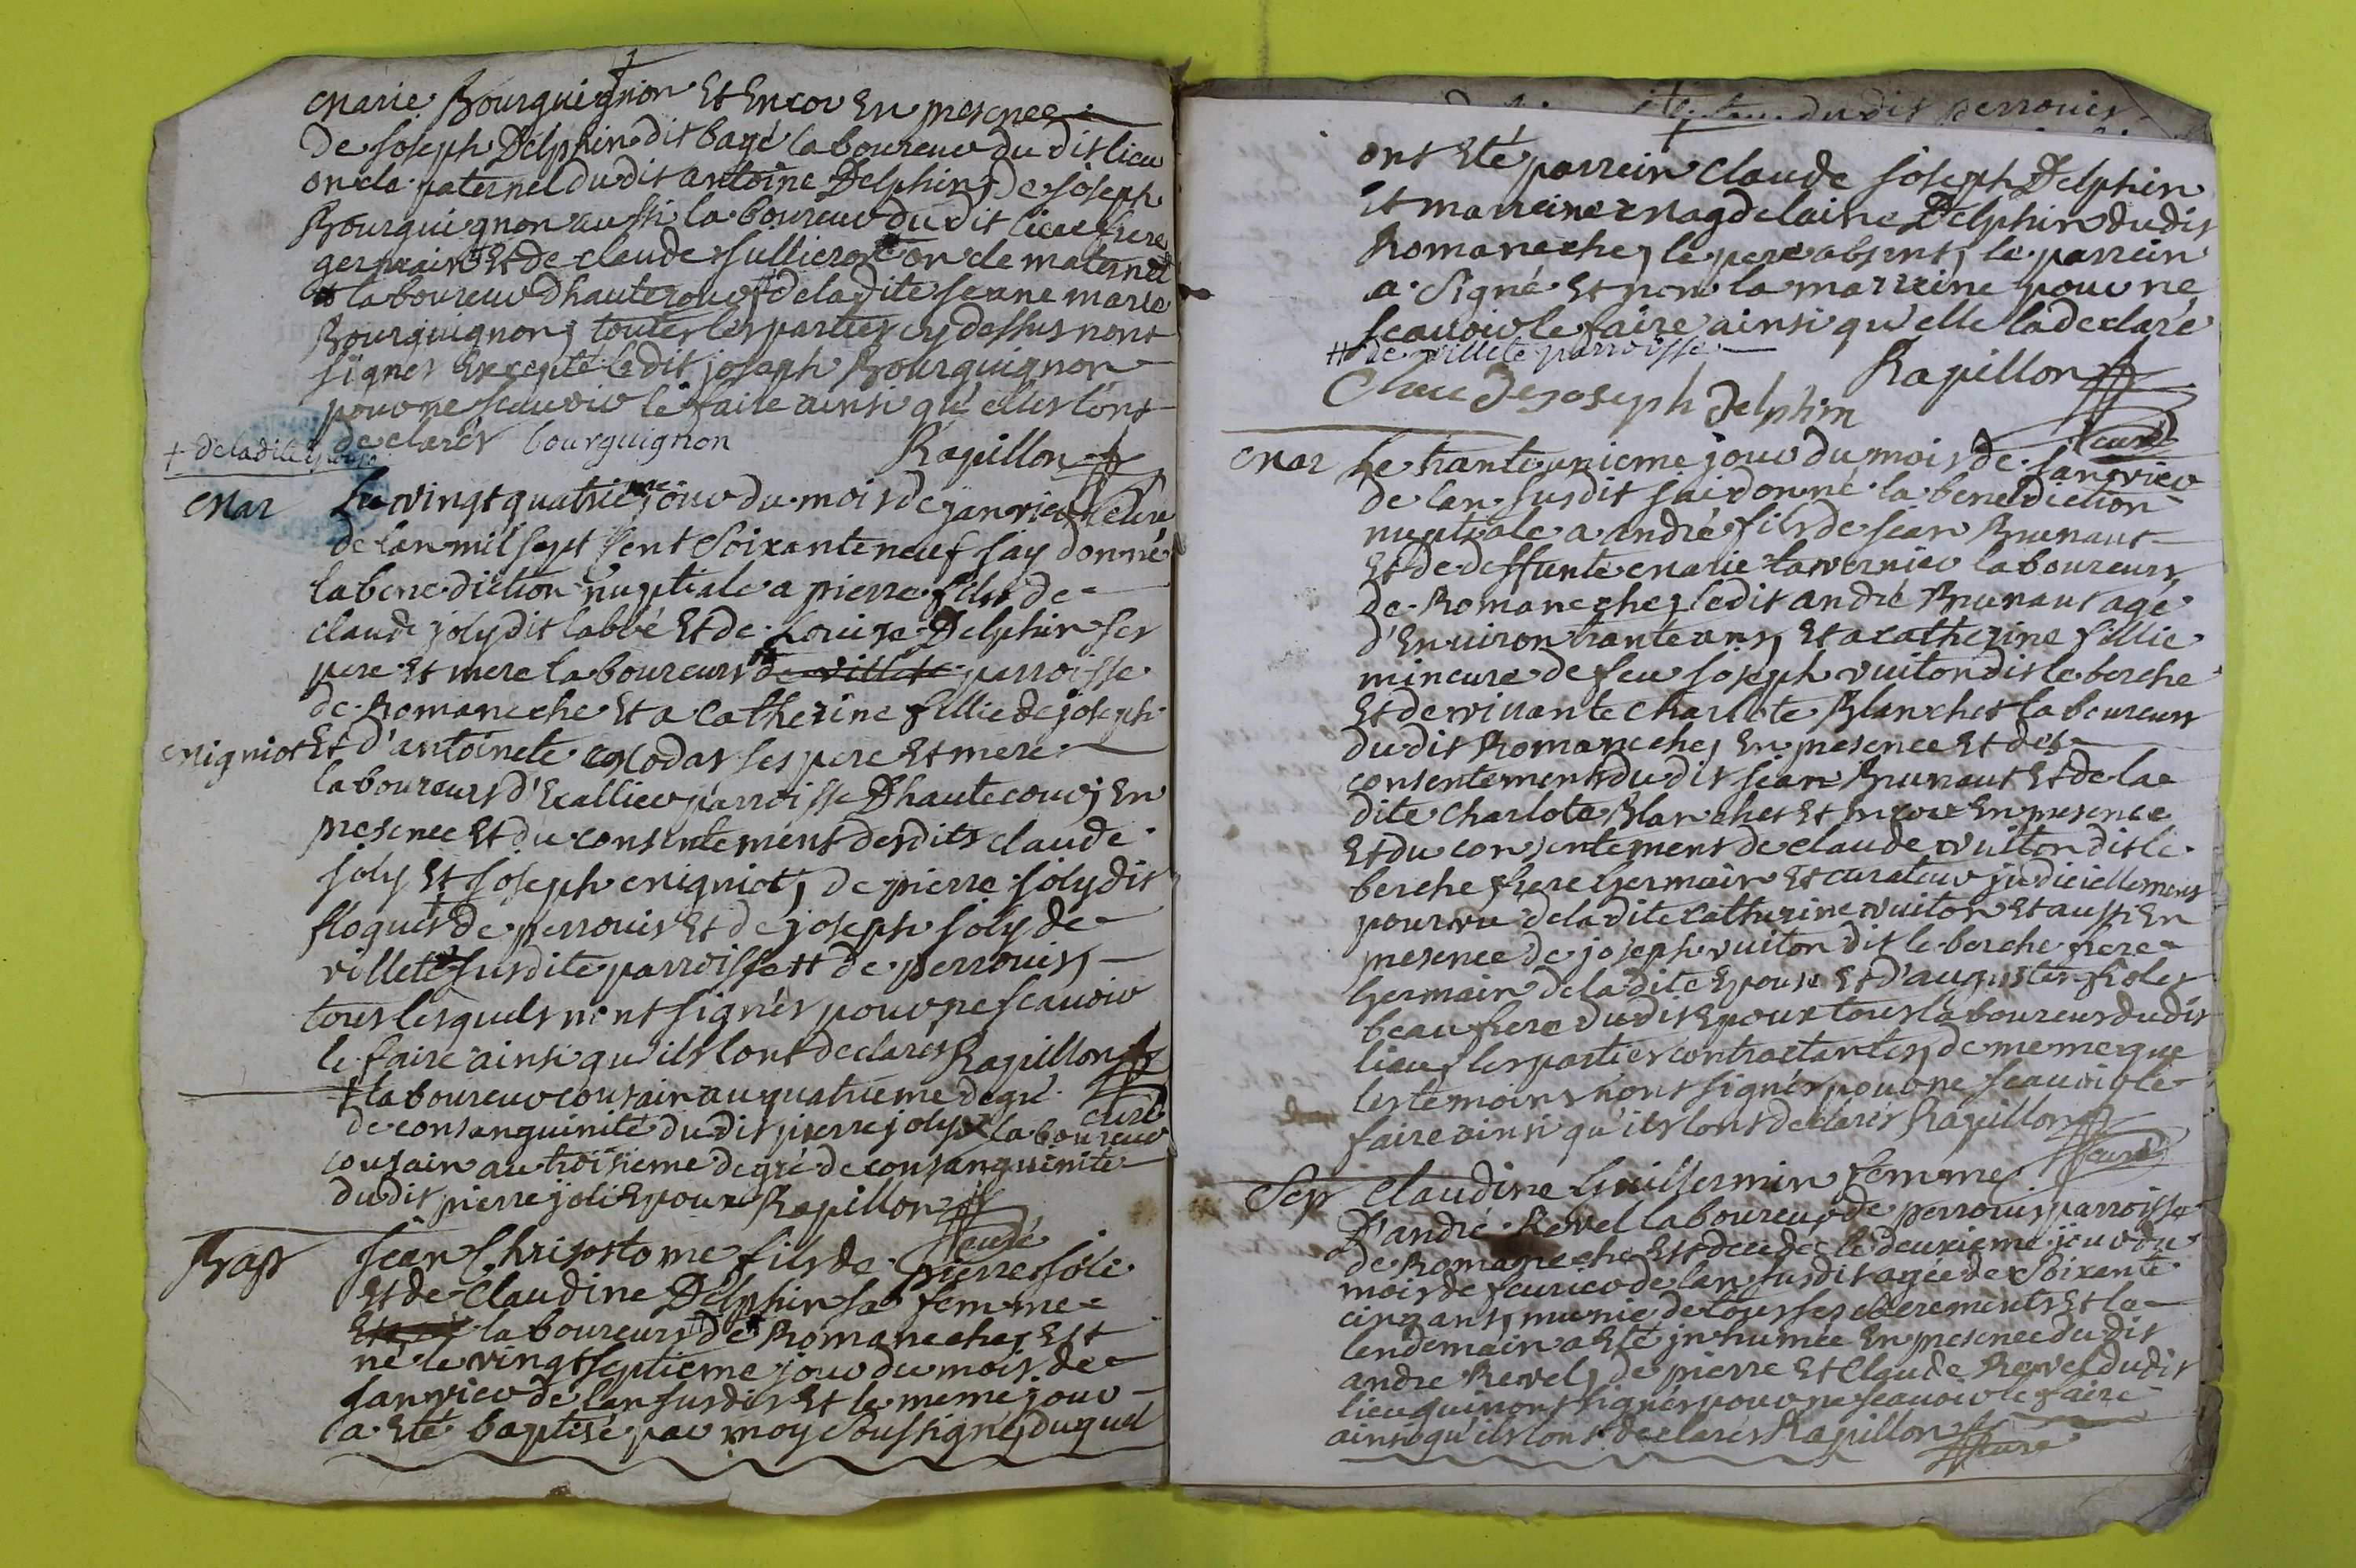 Marie Bourguignon Et Encor En presence
De Joseph Delphin dit bagé laboureur du dit lieu
oncle paternel du dit antoine Delphin, de Joseph
Bourguignon aussi laboureur du dit lieu frere
germain Et de claude fullieron oncle maternel
laboureur dhautecour de la dite Jeane marie
Bourguignon, toutes les parties cy dessus nont
signes Excepté le dit joseph Bourguignon
pour ne scauoir le faire ainsi qu'elles lont
+ de la dite declarés bourguignon Rapillon
curé
Mar Le vingt quatrieme jour du mois de janvier
de lan mil sept sent soixante neuf jay donné
la benediction nuptiale a pierre fils de
claude joly dit labbé Et de Louise Delphin ses
pere et mere laboureurs de villete parroisse
de Romaneche Et a Catherine fillie de joseph
Migniot Et d'antoinete Modas ses pere Et mere
laboureurs d'Ecallieu parroisse Dhautecour, En
presence Et du consentement desdits claude
joly Et Joseph Migniot, de pierre joly dit
floquet + de perrouis Et de joseph joly de
villete susdite parroisse ++ de perrouis,
tous lesquels nont signés pour ne scauoir
le faire ainsi qu'ils lont declarés Rapillon
curé
+ laboureur cousain au quatrieme degré
de consanguinité du dit pierre joly, laboureur
cousain au troisieme degré de consanguinité
du dit pierre joli Epoux Rapillon
curé
Bap Jean Chrisostome fils de pierre joli
Et de Claudine Delphin sa femme
laboureurs de Romaneche, Est
né le vingt septieme jour du mois de
janvier de lan susdit Et le meme jour
a Eté baptisé par moy soussigné, duquel
du dit perrouis
ont Eté parrein Claude Joseph Delphin
Et marreine Magdelaine Delphin du dit
Romaneche, le pere absent, le parrein
a signé Et non la marreine pour ne
scauoir le faire ainsi qu'elle la declaré
++ de villete parroisse
Rapillon
Claude joseph delphin
curé
Mar Le trante unieme jour du mois de janvier
de lan susdit jai donné la benediction
nuptiale a andré fils de jean Brunaut
Et de deffunte Marie tavernier laboureurs
de Romaneche, ledit andré Brunaut agé
d'Enuiron trante ans, Et a catherine fillie
mineure de feu joseph vuiton dit le berche
Et de viuante Charlote Blanchet laboureurs
du dit Romaneche, En presence Et des
consentements du dit jean Brunaut Et de la
dite Charlote Blanchet Et Encore En presence
Et du consentement de claude vuiton dit le
berche frere Germain Et curateur judiciellement
pourvu de la dite Catherine vuiton Et aussi En
presence de joseph vuiton dit le berche frere
Germain de la dite Epouse Et d'augustin
beau frere du dit Epoux tous laboureurs du dit
lieu, les parties contractantes, de meme que
les temoins nont signés pour ne scauoir le
faire ainsi qu'ils lont declarés Rapillon
curé
Sep Claudine Guillermin femme
D'andré Revel laboureur de perrouis parroisse
de Romaneche Est decedee le deuxieme jour du
mois de feurier de lan susdit agée de soixante
cinq ans, munie de tous ses sacrements Et le
lendemain a Eté jnhumée En presence du dit
andre Revel, de pierre Et Claude Revel du dit
lieu qui nont signés pour ne scauoir le faire
ainsi qu'ils lont declarés Rapillon
curé